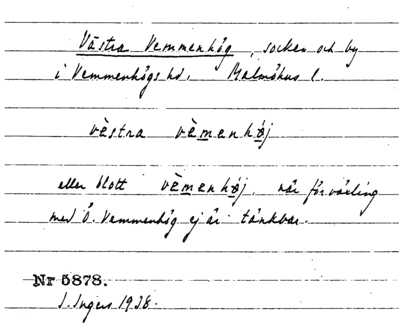 Västra Vemmenhög, socken och by
i Vemmenhögs hd, Malmöhus l.
vèstra vèmenhøj
eller blott vèmenhøj, när förväxling
med Ö. Vemmenhög ej är tänkbar.
Nr 5878.
I. Ingers 1938.